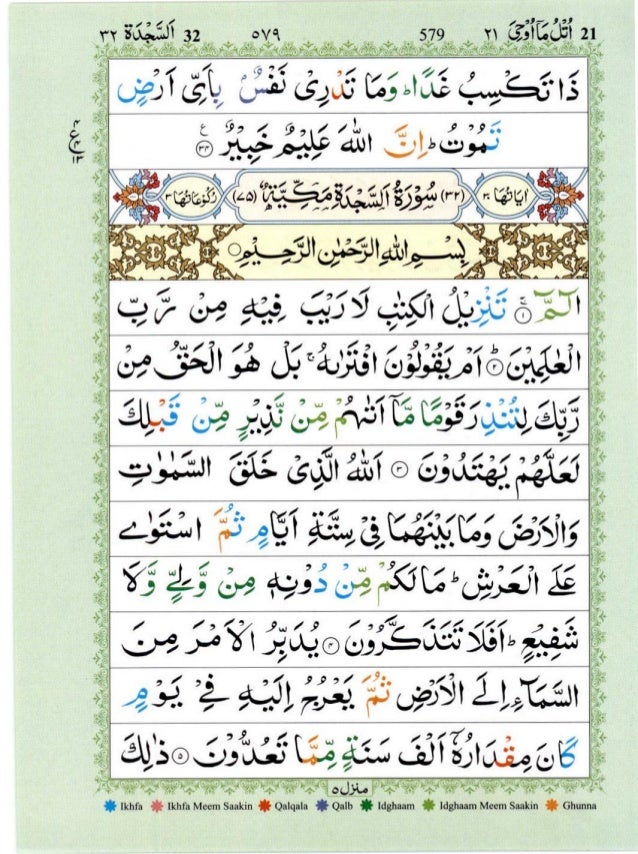 اُتْلُ مَاۤ اُوْحِیَ ٢١ 21 579 ٥٧٩ اَلسَّجْدَة ٣٢ 32
ذَا تَكْسِبُ غَدًاؕ وَمَا تَدْرِیْ نَفْسٌۢ بِاَیِّ اَرْضٍ
تَمُوْتُؕ اِنَّ اللّٰهَ عَلِیْمٌ خَبِیْرٌ ﴿٣٤﴾
ع
اٰیَاتُهَا ٣٠ (٣٢) سُوْرَةُ السَّجْدَةِ مَكِّیَّةٌ (٧٥) رُكُوْعَاتُهَا ٣
بِسْمِ اللّٰهِ الرَّحْمٰنِ الرَّحِیْمِ
الٓمّٓ ۚ﴿١﴾ تَنْزِیْلُ الْكِتٰبِ لَا رَیْبَ فِیْهِ مِنْ رَّبِّ
الْعٰلَمِیْنَ ؕ﴿٢﴾ اَمْ یَقُوْلُوْنَ افْتَرٰىهُ ۚ بَلْ هُوَ الْحَقُّ مِنْ
رَّبِّكَ لِتُنْذِرَ قَوْمًا مَّاۤ اَتٰىهُمْ مِّنْ نَّذِیْرٍ مِّنْ قَبْلِكَ
لَعَلَّهُمْ یَهْتَدُوْنَ ﴿٣﴾ اَللّٰهُ الَّذِیْ خَلَقَ السَّمٰوٰتِ
وَالْاَرْضَ وَمَا بَیْنَهُمَا فِیْ سِتَّةِ اَیَّامٍ ثُمَّ اسْتَوٰى
عَلَى الْعَرْشِؕ مَا لَكُمْ مِّنْ دُوْنِهٖ مِنْ وَّلِیٍّ وَّلَا
شَفِیْعٍؕ اَفَلَا تَتَذَكَّرُوْنَ ﴿٤﴾ یُدَبِّرُ الْاَمْرَ مِنَ
السَّمَآءِ اِلَى الْاَرْضِ ثُمَّ یَعْرُجُ اِلَیْهِ فِیْ یَوْمٍ
كَانَ مِقْدَارُهٗۤ اَلْفَ سَنَةٍ مِّمَّا تَعُدُّوْنَ ﴿٥﴾ ذٰلِكَ
منزل ٥
Ikhfa Ikhfa Meem Saakin Qalqala Qalb Idghaam Idghaam Meem Saakin Ghunna